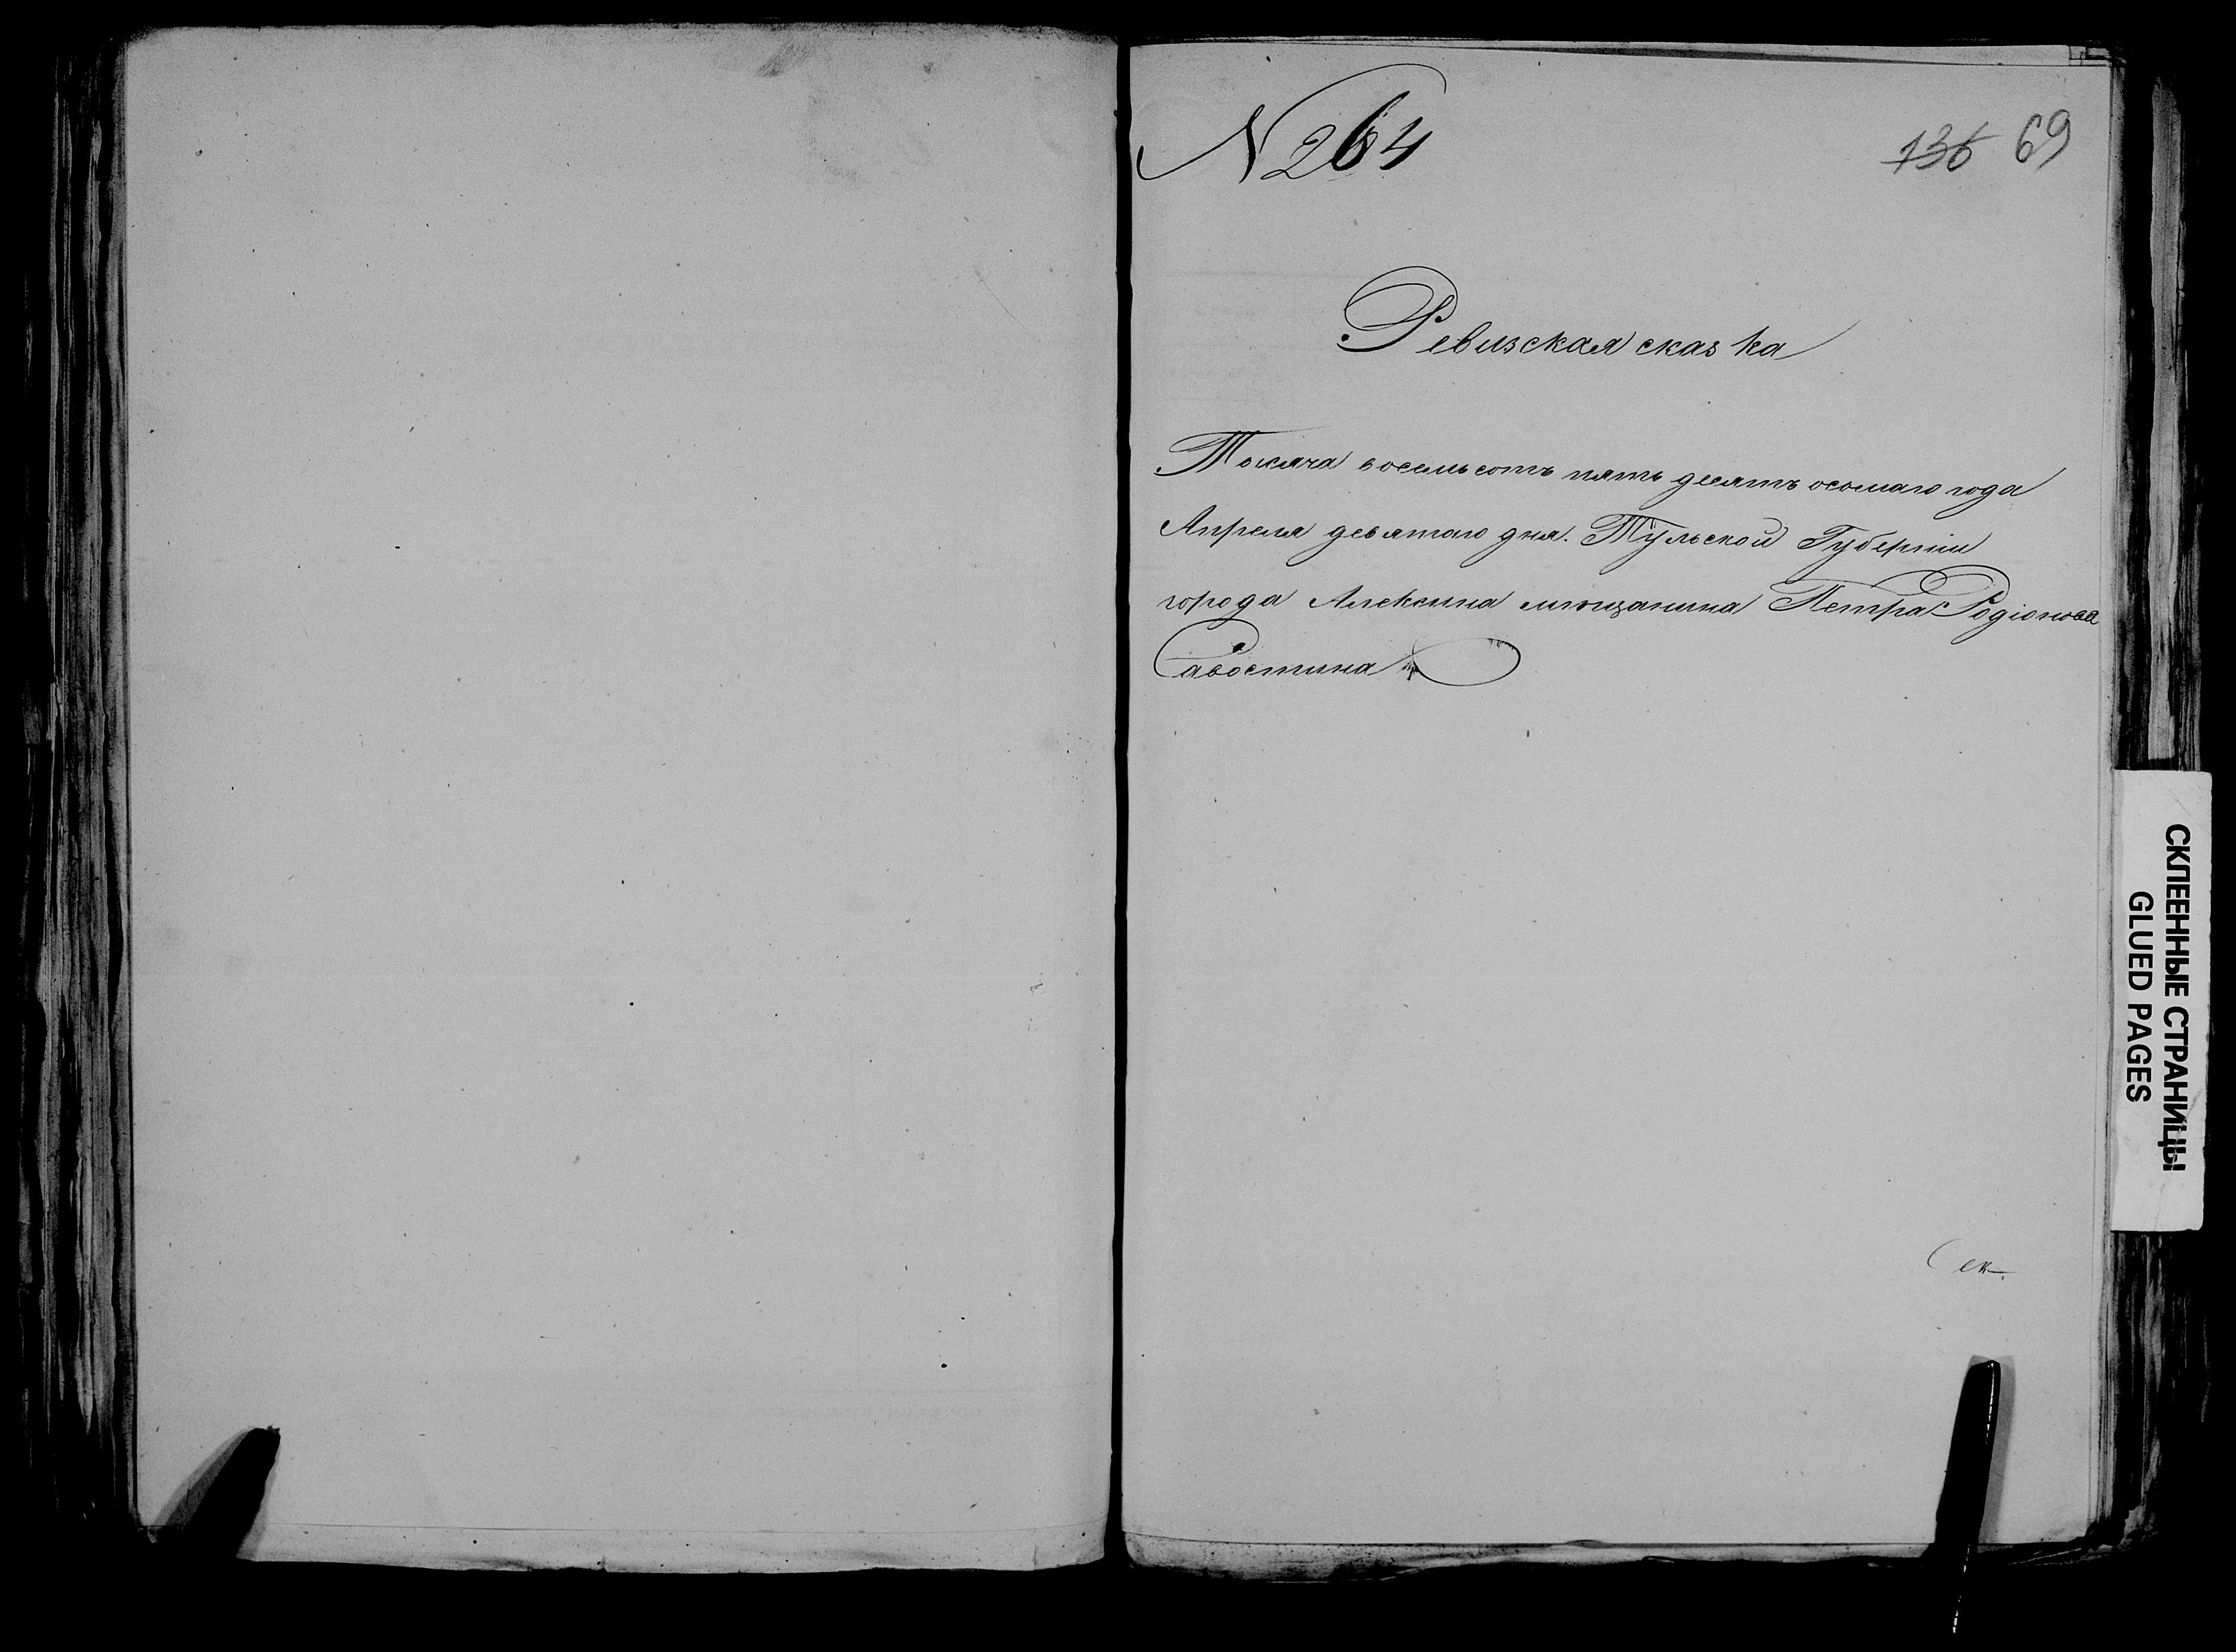 N 264
136 69
Ревизская сказка
Тысяча восемьсотъ пятьдесятъ осьмаго года
Апреля девятаго дня. Тульской Губернiи
города Алексина мѣщанина Петра Родiонова
Савостина
Сек.
СКЛЕЕННЫЕ СТРАНИЦЫ
GLUED PAGES